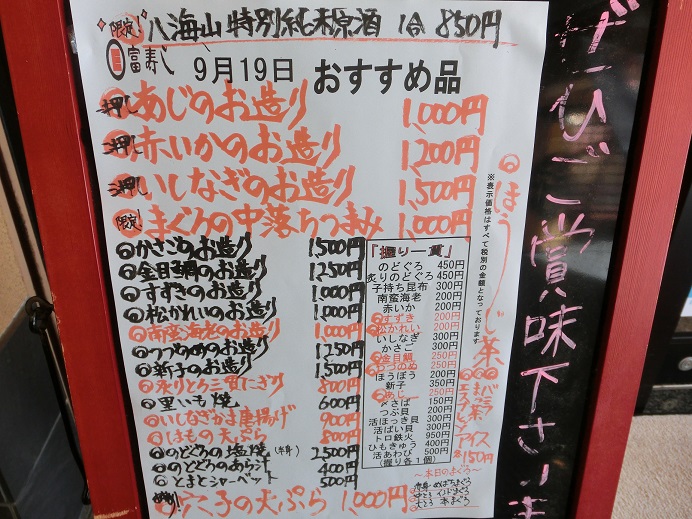 限定! 八海山 特別純米原酒 1合 850円
富寿し
9月19日 おすすめ品
押し あじのお造り 1,000円
押し 赤いかのお造り 1,200円
押し いしなぎのお造り 1,500円
限定! まぐろの中落ちつまみ 1,000円
かさごのお造り 1,500円
金目鯛のお造り 1,250円
すずきのお造り 1,000円
松かれいのお造り 1,000円
南蛮海老のお造り 1,000円
つぶ のお造り 1,250円
新子のお造り 1,500円
炙りとろ三貫にぎり 800円
里いも焼 600円
いしなぎかま唐揚げ 900円
はもの天ぷら 800円
のどぐろの塩焼(半身) 2,500円
のどぐろのあら汁 400円
とまとシャーベット 500円
穴子の天ぷら 1,000円
「握り一貫」
のどぐろ 450円
炙りのどぐろ 450円
子持ち昆布 300円
南蛮海老 200円
赤いか 200円
すずき 200円
松かれい 200円
いしなぎ 300円
かさご 300円
金目鯛 250円
250円
ほうぼう 200円
新子 350円
あじ 250円
〆さば 150円
つぶ貝 200円
活ほっき貝 300円
活ばい貝 300円
トロ鉄火 950円
ひもきゅう 400円
活あわび 500円
(握り各1個)
※表示価格はすべて税別の金額となっております
ほうじ茶
バニラ
まっ茶
アイス
各150円
~本日のまぐろ~
赤身…めばちまぐろ
中とろ…インドまぐろ
大とろ…本まぐろ
ぜひご賞味下さいま